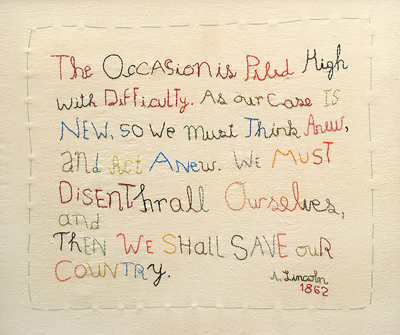 The OccAsion is Piled High
with Difficulty. As our Case IS
NEW, SO We Must Think Anew,
and Act Anew. We MUST
DISENThrall Ourselves,
and
ThEN WE SHall SAVE ouR
COUNTRY.
A. Lincoln
1862